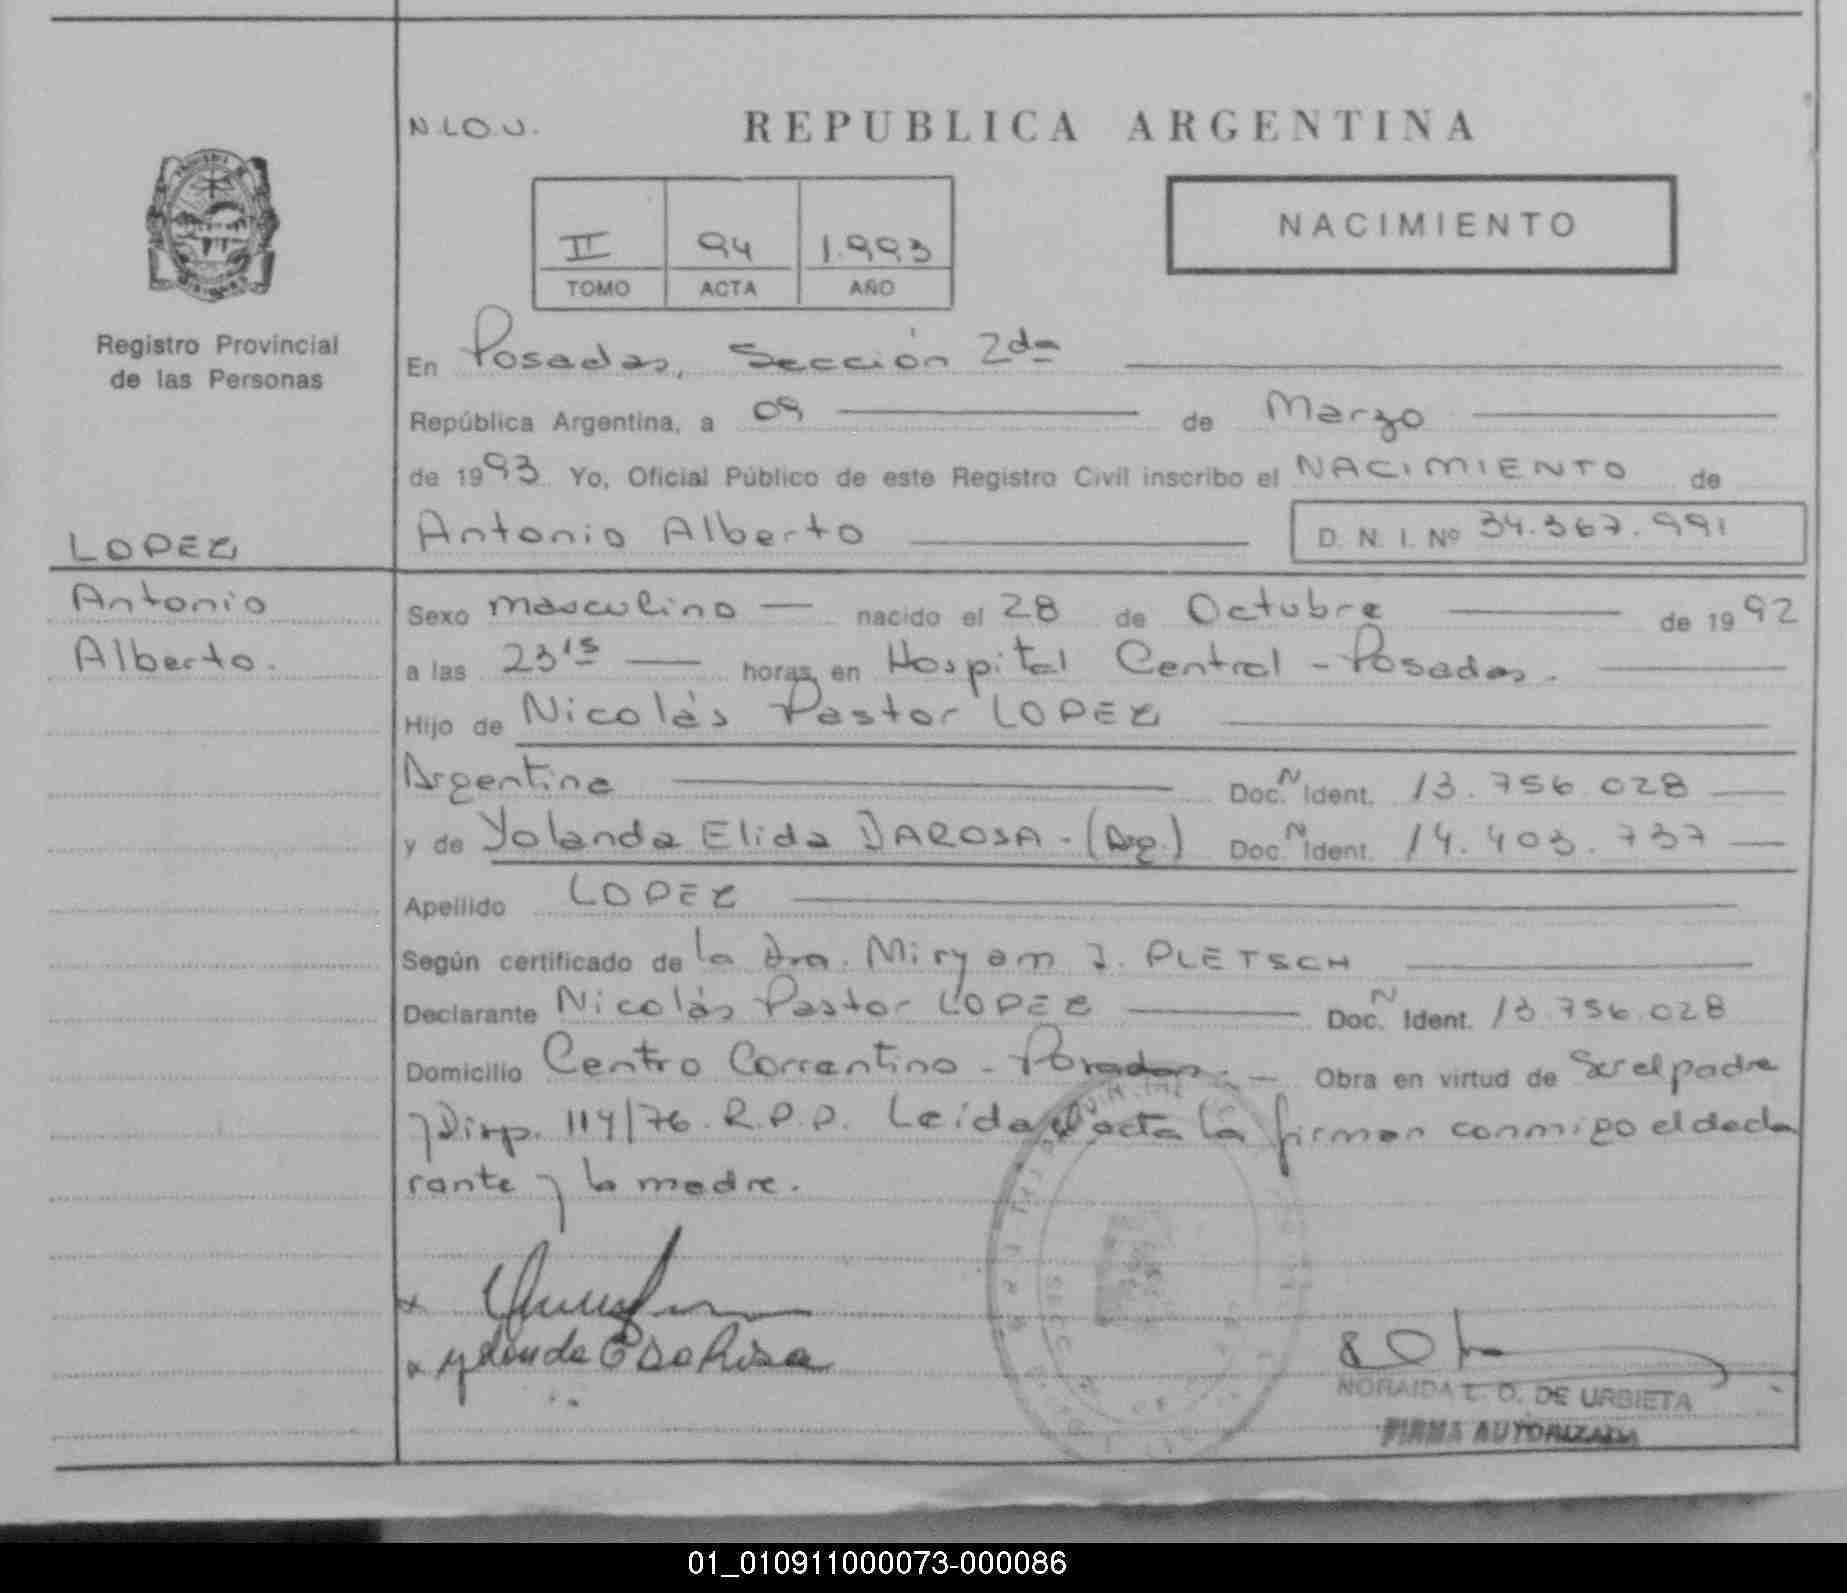 N.I.O.U.
REPUBLICA ARGENTINA
II 94 1.993
TOMO ACTA AÑO
NACIMIENTO
Registro Provincial
de las Personas
En Posadas, Sección 2da
República Argentina, a 09 de Marzo
de 1993 Yo, Oficial Público de este Registro Civil inscribo el NACIMIENTO de
LOPEZ
Antonio Alberto D. N. I. Nº 34.367.991
Antonio
Alberto.
Sexo masculino nacido el 28 de Octubre de 1992
a las 23 15 horas, en Hospital Central - Posadas.
Hijo de Nicolás Pastor LOPEZ
Argentina Doc. N Ident. 13.756.028
y de Yolanda Elida DAROSA - (Arg.) Doc. N Ident. 14.403.737
Apellido LOPEZ
Según certificado de la Dra. Miryam J. PLETSCH
Declarante Nicolás Pastor LOPEZ Doc. N Ident. 13.756.028
Domicilio Centro Correntino - Posadas. Obra en virtud de Ser el padre
y Disp. 114/76. R.P.P. Leída el acta la firman conmigo el decla
rante y la madre.
NORAIDA L. O. DE URBIETA
FIRMA AUTORIZADA
01_010911000073-000086